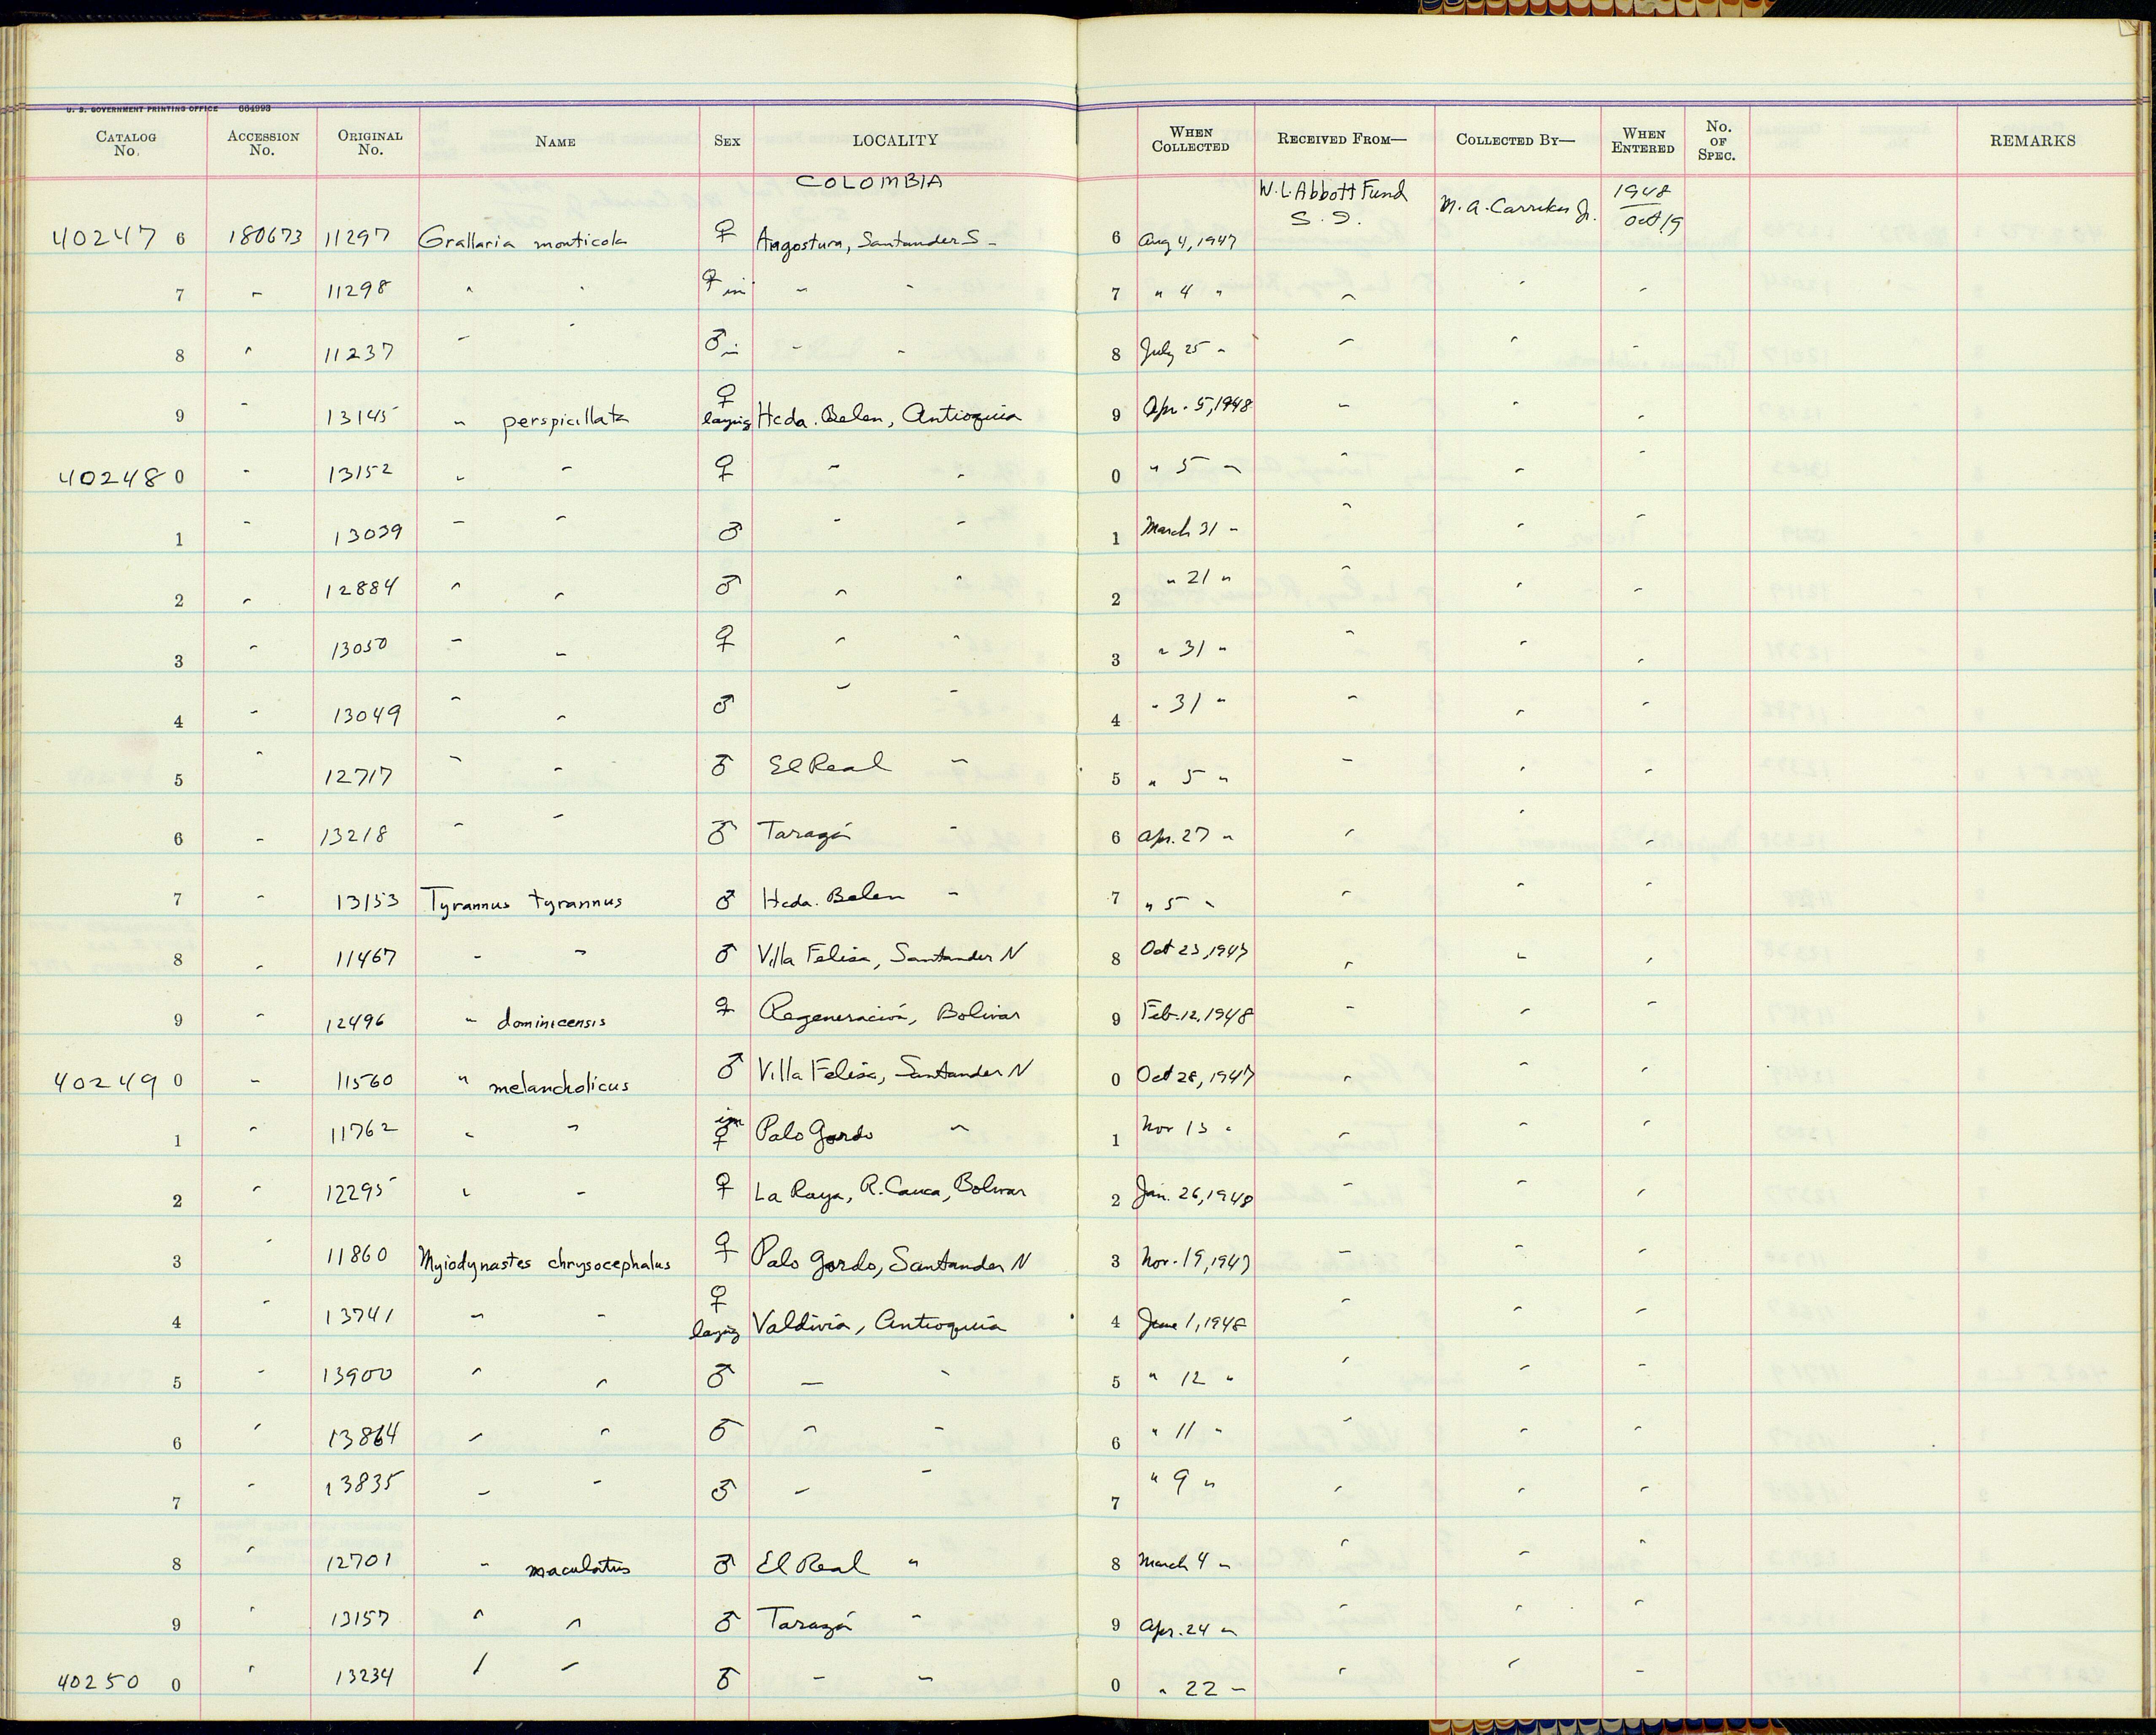 U. S. GOVERNMENT PRINTING OFFICE 664993
CATALOG No. ACCESSION No. ORIGINAL No. NAME SEX LOCALITY WHEN COLLECTED RECEIVED FROM— COLLECTED BY— WHEN ENTERED No. OF SPEC. REMARKS
COLOMBIA W. L. Abbott Fund S. I. M. A. Carriker Jr. 1948 Oct 19
40247 6 180673 11297 Grallaria monticola ♀ Angostura, Santander S - 6 Aug 4, 1947
7 " 11298 " " ♀ im " " 7 " 4 " " " "
8 " 11237 " " ♂ im " " 8 July 25 " " " "
9 " 13145 " perspicillata ♀ laying Hcda. Belen, Antioquia 9 Apr. 5, 1948 " " "
40248 0 " 13152 " " ♀ " " 0 " 5 " " " "
1 " 13039 " " ♂ " " 1 March 31 " " " "
2 " 12884 " " ♂ " " 2 " 21 " " " "
3 " 13050 " " ♀ " " 3 " 31 " " " "
4 " 13049 " " ♂ " " 4 " 31 " " " "
5 " 12717 " " ♂ El Real " 5 " 5 " " " "
6 " 13218 " " ♂ Tarazá " 6 Apr. 27 " " " "
7 " 13153 Tyrannus tyrannus ♂ Hcda. Belen " 7 " 5 " " " "
8 " 11467 " " ♂ Villa Felisa, Santander N 8 Oct 23, 1947 " " "
9 " 12496 " dominicensis ♀ Regeneración, Bolivar 9 Feb. 12, 1948 " " "
40249 0 " 11560 " melancholicus ♂ Villa Felisa, Santander N 0 Oct 28, 1947 " " "
1 " 11762 " " im ♀ Palo Gordo " 1 Nov 13 " " " "
2 " 12295 " " ♀ La Raya, R. Cauca, Bolivar 2 Jan. 26, 1948 " " "
3 " 11860 Myiodynastes chrysocephalus ♀ Palo Gordo, Santander N 3 Nov. 19, 1947 " " "
4 " 13741 " " ♀ laying Valdivia, Antioquia 4 June 1, 1948 " " "
5 " 13900 " " ♂ " " 5 " 12 " " " "
6 " 13864 " " ♂ " " 6 " 11 " " " "
7 " 13835 " " ♂ " " 7 " 9 " " " "
8 " 12701 " maculatus ♂ El Real " 8 March 4 " " " "
9 " 13157 " " ♂ Tarazá " 9 Apr. 24 " " " "
40250 0 " 13234 " " ♂ " " 0 " 22 " " " "